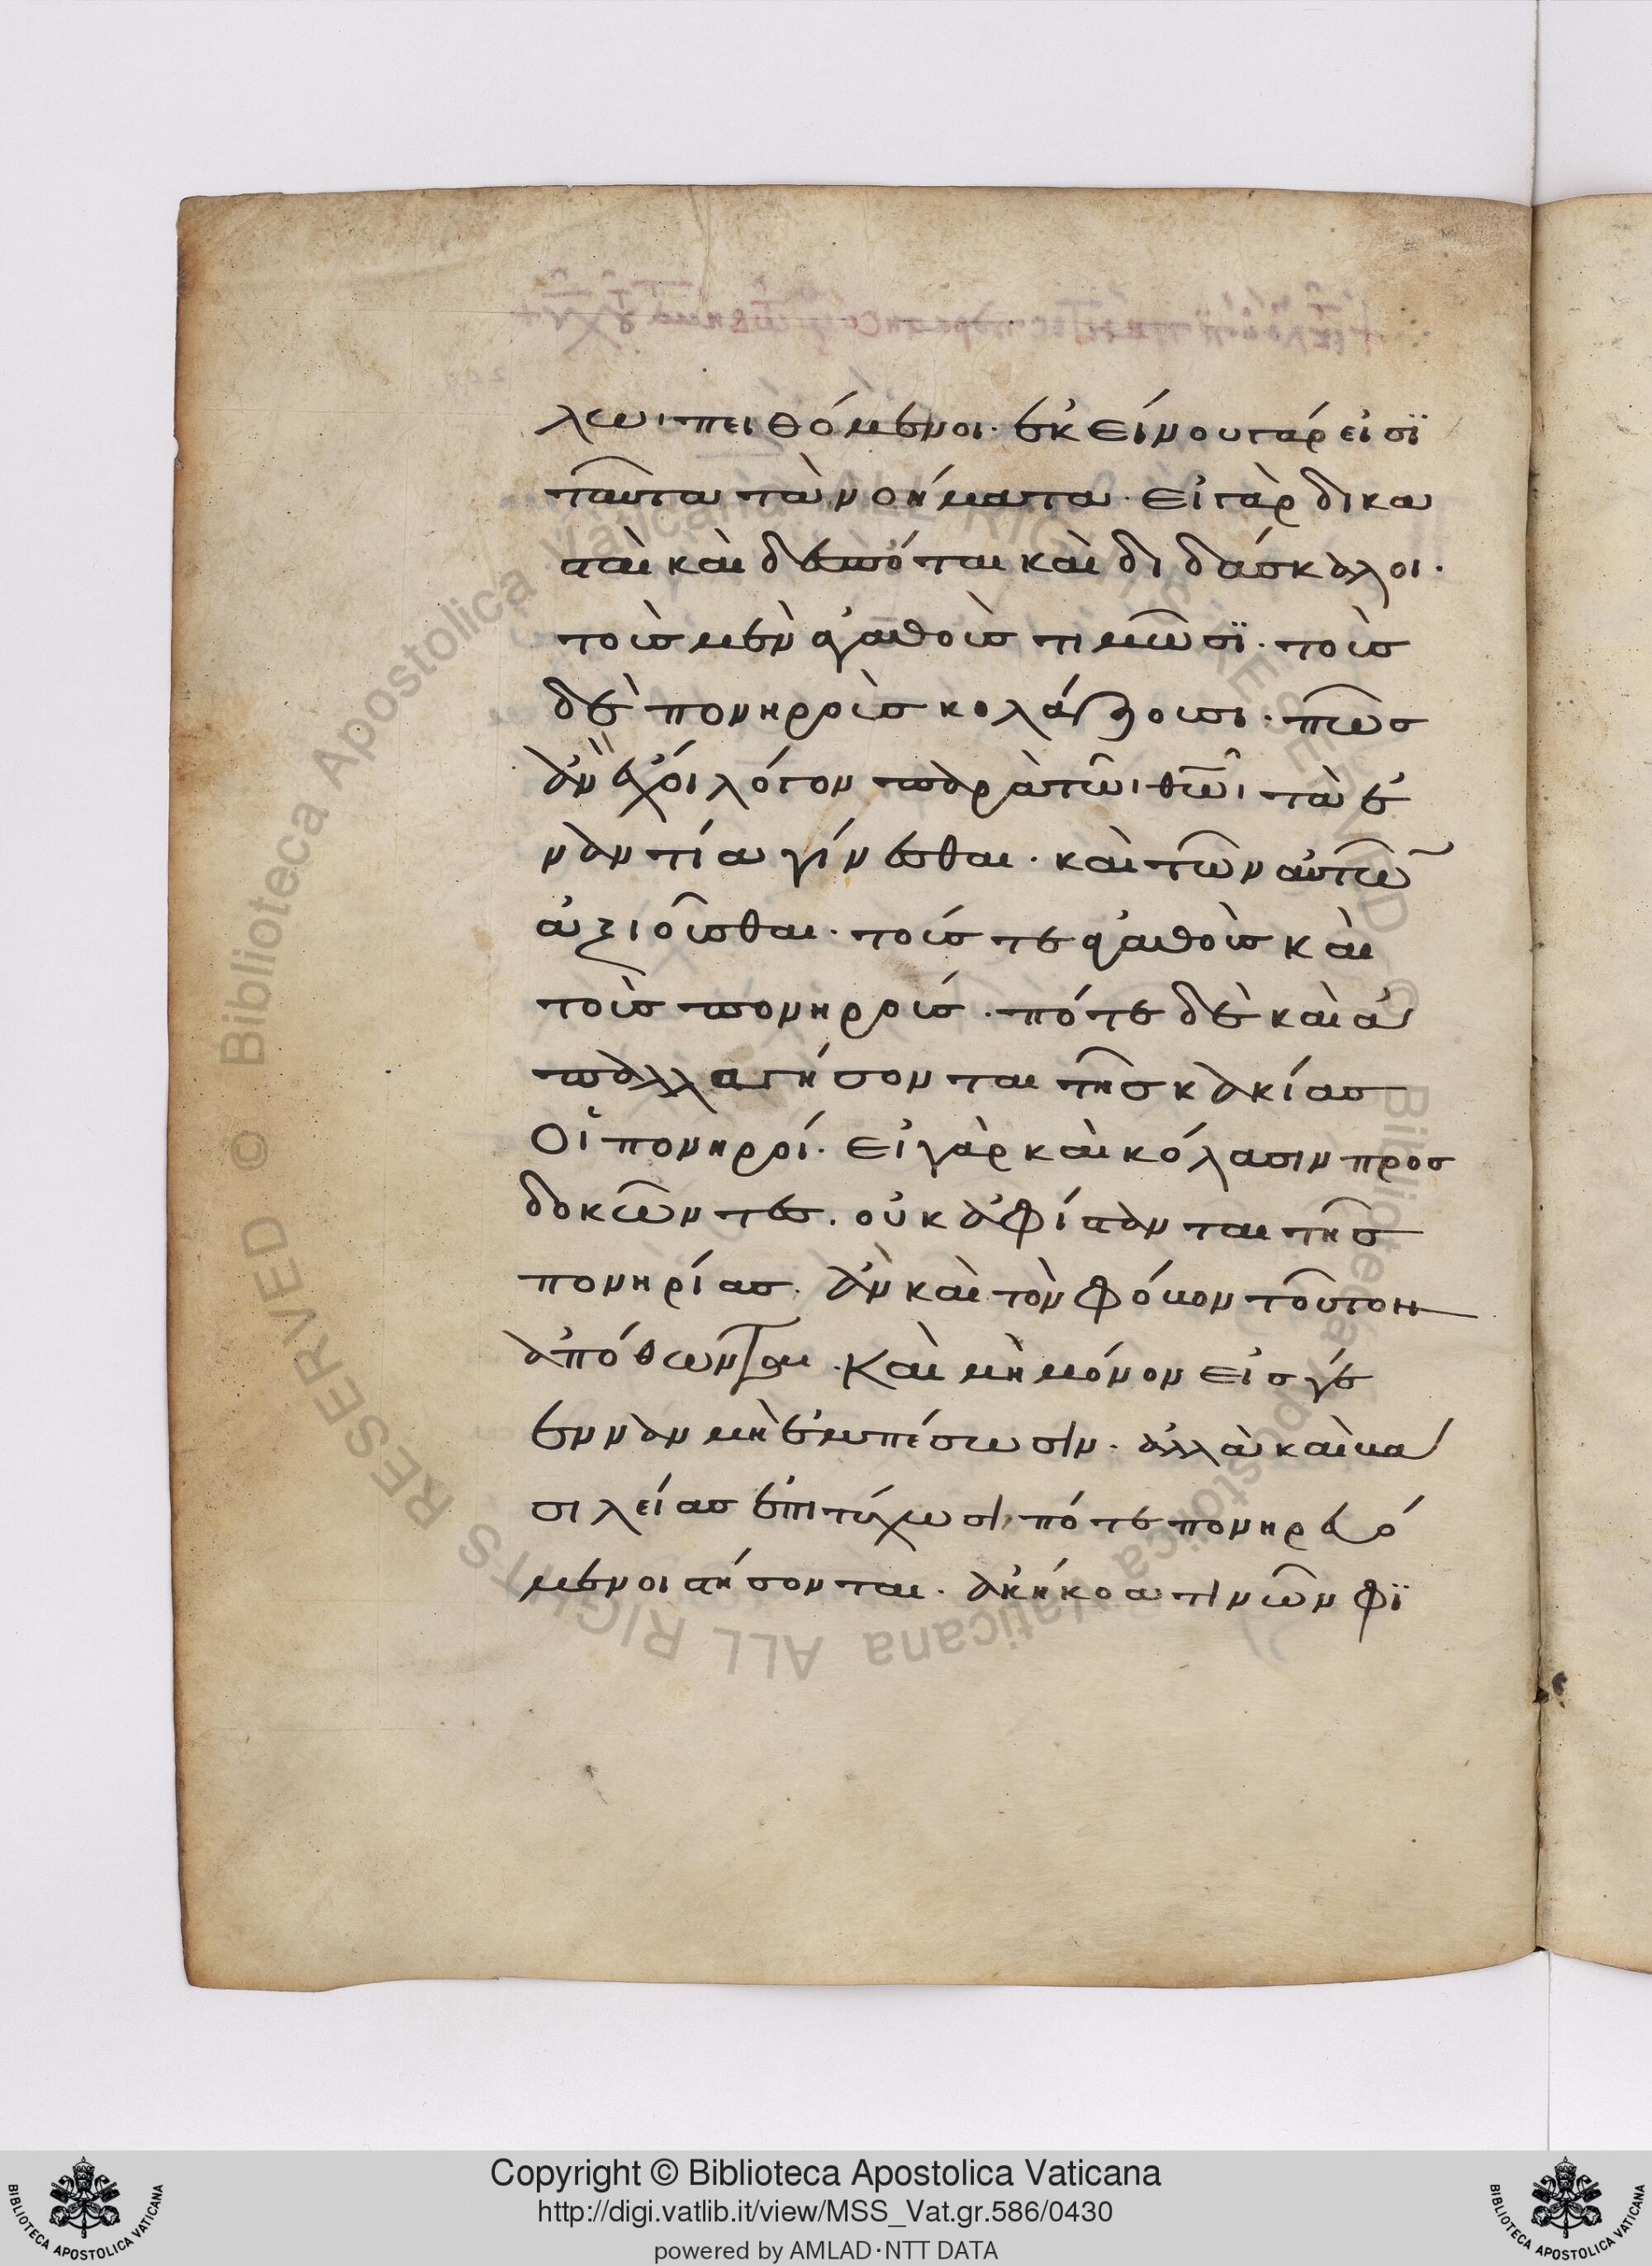 λωι πειθόμενοι· ἐκείνου γάρ εἰσϊ
ταῦτα τὰ νοήματα· Εἰ γὰρ δικα
σταὶ καὶ δεσπόται καὶ διδάσκαλοι·
τοὺς μὲν ἀγαθοὺς τιμῶσϊ· τοὺς
δὲ πονηροὺς κολάζουσι· πῶς
ἂν ἔχοι λόγον παρὰ τῶι θῶι τὰ ἐ
ναντία γίνεσθαι· καὶ τῶν αὐτῶ
ἀξιοῦσθαι· τούς τε ἀγαθοὺς καὶ
τοὺς πονηρούς· πότε δὲ καὶ ἀ
παλλαγήσονται τῆς κακίας
Οἱ πονηροί· Εἰ γὰρ καὶ κόλασιν προσ
δοκῶντες· οὐκ ἀφίστανται τῆς
πονηρίας· ἂν καὶ τὸν φόβον τοῦτον
ἀπόθωνται· Καὶ μὴ μόνον εἰς γέ
ενναν μὴ ἐμπέσωσιν· ἀλλὰ καὶ βα
σιλείας ἐπιτύχωσι, πότε πονηρευό
μενοι στήσονται· ἀκήκοα τινῶν φϊ
Copyright © Biblioteca Apostolica Vaticana
http://digi.vatlib.it/view/MSS_Vat.gr.586/0430
powered by AMLAD·NTT DATA
BIBLIOTECA APOSTOLICA VATICANA
BIBLIOTECA APOSTOLICA VATICANA
Biblioteca Apostolica Vaticana ALL RIGHTS RESERVED ©
Biblioteca Apostolica Vaticana ALL RIGHTS RESERVED ©